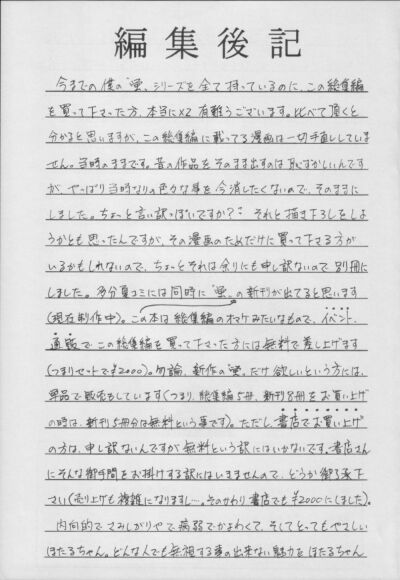 編集後記
今までの僕の"蛍"シリーズを全て持っているのに、この総集編
を買って下さった方、本当に×2 有難うございます。比べて頂くと
分かると思いますが、この総集編に載ってる漫画は一切手直ししていま
せん。当時のままです。昔の作品をそのまま出すのは恥ずかしいんです
が、やっぱり当時なりの色々な事を今消したくないので、そのままに
しました。ちょっと言い訳っぽいですか?… それと描き下ろしをしよ
うかとも思ったんですが、その漫画のためだけに買って下さる方が
いるかもしれないので、ちょっとそれは余りにも申し訳ないので 別冊に
しました。多分夏コミには同時に"蛍"の新刊が出てると思います
(現在制作中)。この本は総集編のオマケみたいなもので、イベント、
通販でこの総集編を買って下さった方には無料で差し上げます
(つまりセットで¥2000)。勿論、新作の"蛍"だけ欲しいという方には、
単品で販売もしています(つまり、総集編5冊、新刊8冊をお買い上げ
の時は、新刊5冊分は無料という事です)。ただし、書店でお買い上げ
の方は、申し訳ないんですが無料という訳にはいかないです。書店さん
にそんな御手間をお掛けする訳にはいきませんので、どうか御了承下
さい(売り上げも複雑になりますし…。そのかわり書店でも¥2000にしました)。
内向的でさみしがりやで病弱でかよわくて、そしてとってもやさしい
ほたるちゃん。どんな人でも無視する事の出来ない魅力をほたるちゃん